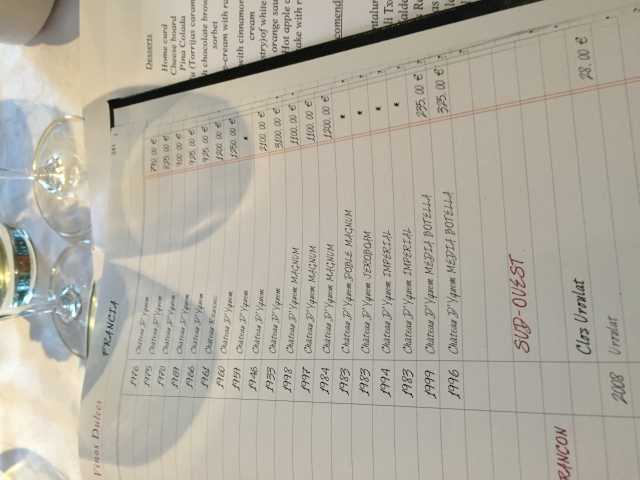 Desserts
Home curd
Cheese board
Pina Colada
(Torrijas caram
h chocolate brow
sorbet
-cream with
with cinnamon
cream
stry of white
orange sau
Hot apple
ake with r
comend
Vinos Dulces
FRANCIA
1976 Chateau D'Yquem 770.00 €
1975 Chateau D'Yquem 625.00 €
1970 Chateau D'Yquem 900.00 €
1969 Chateau D'Yquem 925.00 €
1966 Chateau D'Yquem 925.00 €
1962 Chateau 1200.00 €
1960 Chateau D'Yquem 1250.00 €
1959 Chateau D'Yquem *
1946 Chateau D'Yquem 2100.00 €
1933 Chateau D'Yquem 3100.00 €
1998 Chateau D'Yquem MAGNUM 1100.00 €
1997 Chateau D'Yquem MAGNUM 1100.00 €
1984 Chateau D'Yquem MAGNUM 1200.00 €
1983 Chateau D'Yquem DOBLE MAGNUM *
1983 Chateau D'Yquem JEROBOAM *
1994 Chateau D'Yquem IMPERIAL *
1983 Chateau D'Yquem IMPERIAL *
1999 Chateau D'Yquem MEDIA BOTELLA 235.00 €
1996 Chateau D'Yquem MEDIA BOTELLA 325.00 €
SUD-OUEST
RANCON
Clos Uroulat 28.00 €
2008 Uroulat